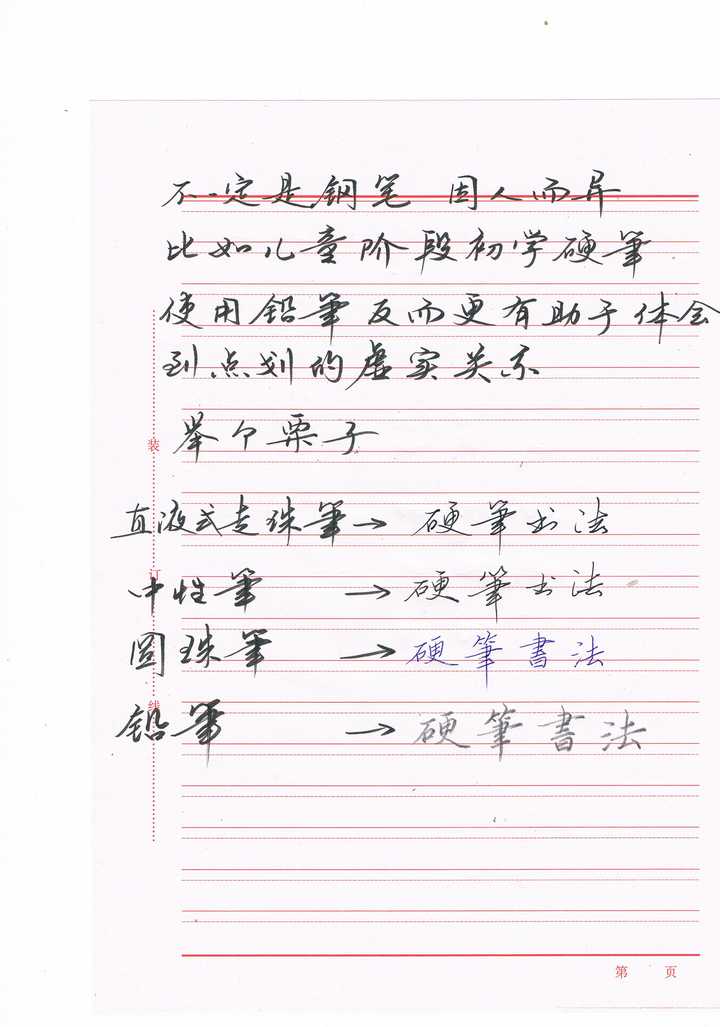 不一定是钢笔 因人而异
比如儿童阶段初学硬筆
使用铅筆反而更有助于体会
到点划的虚实关系
举个栗子
直液式走珠筆→ 硬筆书法
中性筆 → 硬筆书法
圆珠筆 → 硬筆書法
铅筆 → 硬筆書法
装
订
线
第 页